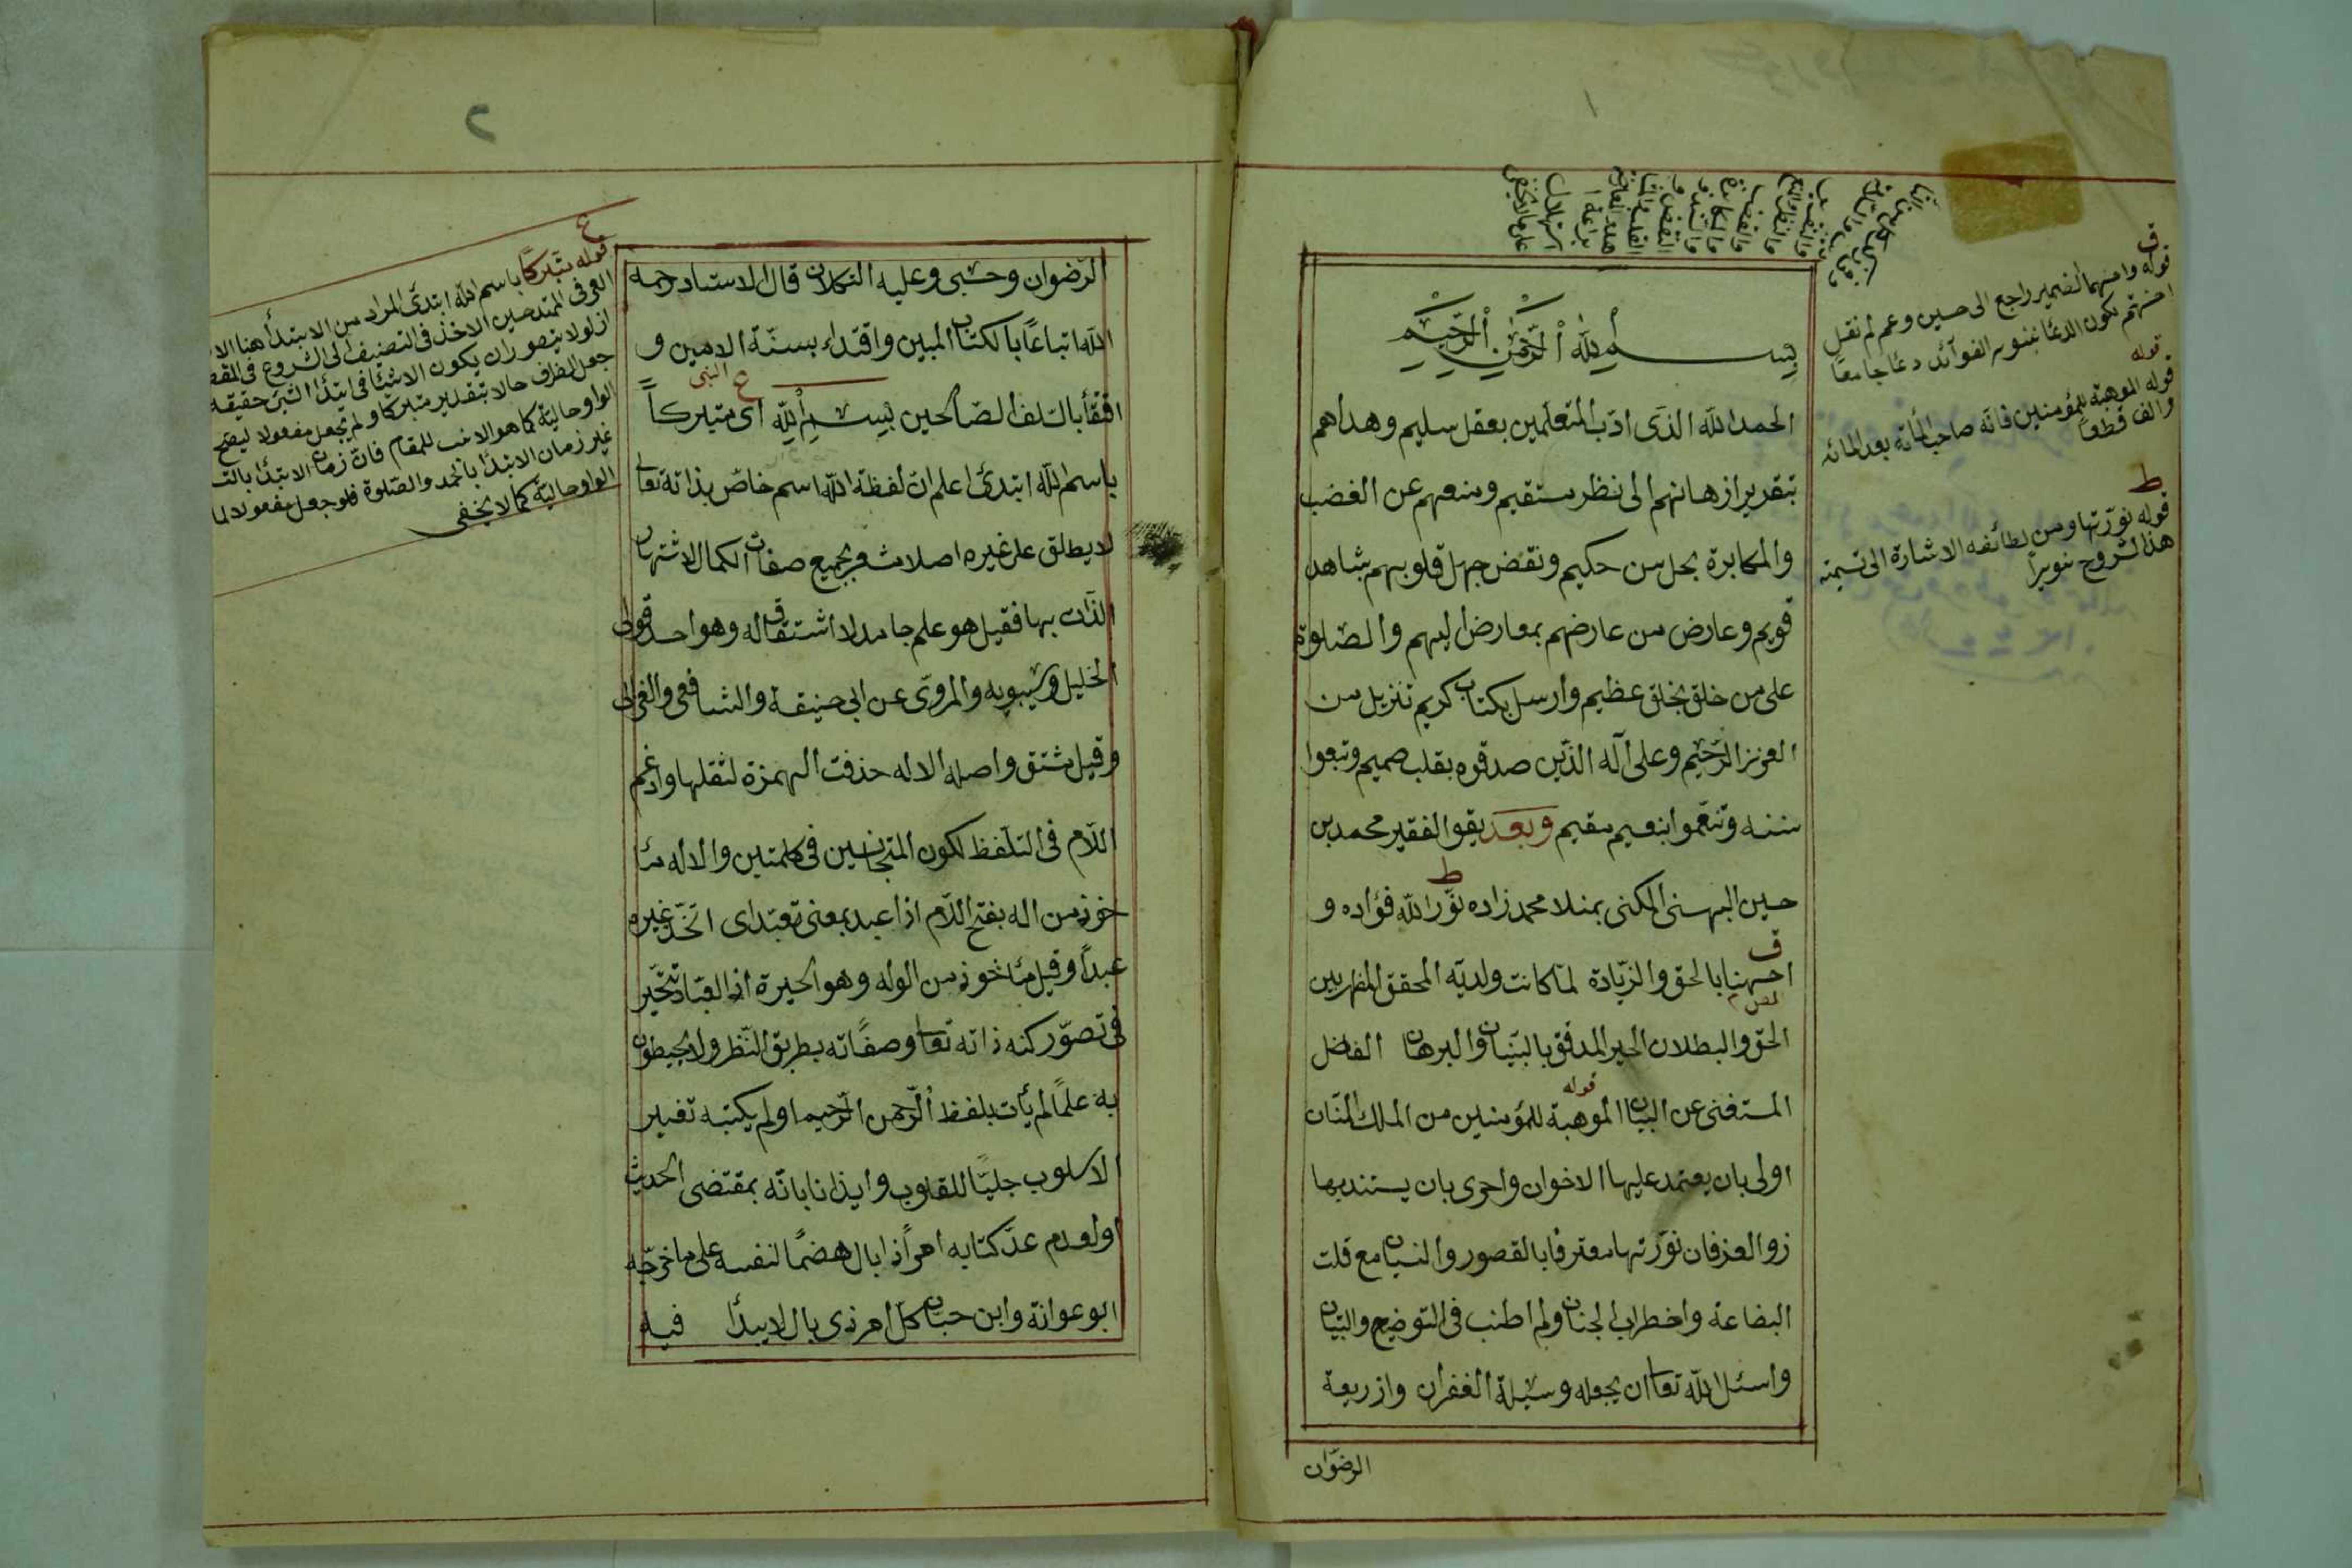 ١
بسم الله الرحمن الرحيم
الحمد الله الذى ادّب المتعلّمين بعقل سليم وهداهم
بتقرير ازهانهم الى نظر مستقيم ومنعهم عن الغضب
والمكابرة بحل من حكيم ونقض جهل قلوبهم بشاهد
قويم وعارض من عارضهم بمعارض اليهم والصلوة
على من خلق بخلق عظيم وارسل بكتاب كريم تنزيل من
العزيز الرّحيم وعلى آله الذّين صدقوه بقلب صميم وتبعوا
سننه وتنعّموا بنعيم مقيم وبعد يقول الفقير محمد بن
حسين البهسنى المكنى بمنلا محمد زاده نوّر الله فؤاده و
احسنهما بالحق والزّيادة لما كانت ولديّه المحقق المظهر بين
الحق والبطلان الحبر المدقق بالبيّنات والبرهان الفاضل
المستغنى عن البيان الموهبة للمؤمنين من الملك المنّان
اولى بان يعتمد عليها الاخوان واحرى بان يستند بها
زو العرفان نوّرتها معترفا بالقصور والنسيان مع قلت
البضاعة واضطراب الجنان ولم اطنب فى التوضيح والتبيان
واسئل الله تعالى ان يجعله وسيلة الغفران وازريعة
الرضوان
ف
قوله وامنهما الضمير راجع الى حسين وعم لم نقل
امنهم ليكون الدعا بتنوير الفوآئد دعًا جامعًا
قوله
قوله الموهبة للمؤمنين فانه صاحب المأته بعد المائه
والف قطعاً
ط
قوله نوّرتها ومن لطائفه الاشارة الى تسمية
هذا الشروح تنويراً
٢
الرّضوان وحسبى وعليه التكلان قال الاستاد رحمه
الله اتباعًا بالكتاب المبين واقتداء بسنّة الامين و
النبى
اقتفأ بالسّلف الصّالحين بسم الله اى متبركاً
باسم الله ابتدئ اعلم ان لفظة الله اسم خاصّ بذاته تعالى
لا يطلق على غيره اصلا مشعر بجميع صفات الكمال لاشتهار
الذّات بها فقيل هو علم جامد لا اشتقاق له وهو احد قولى
الخليل وسيبويه والمروىّ عن ابى حنيفة والشافعى والغزالى
وقيل مشتق واصله الاله حذفت الهمزة لثقلها وادغم
اللّام فى التلفّظ لكون المتجانسين فى كلمتين والاله مأ
خوذ من اله بفتح اللّام اذا عبد بمعنى تعبّد اى اتّخذ غيره
عبداً وقيل مأخوذ من الوله وهو الحيرة اذ العباد تحيّر
فى تصوّر كنه ذاته تعالى وصفاته بطريق النّظر ولا يحيطون
به علمًا لم يأت بلفظ الرّحمن الرّحيم او لم يكتبه تغيير
الاسلوب جليّا للقلوب وايذانا بانّه بمقتضى الحديث
او لعدم عدّ كتابه امراً ذا بال هضمًا لنفسه على ما خرّجه
ابو عوانة وابن حبّان كلّ امر ذى بال لا يبدأ فيه
ع
قوله متبركًا باسم الله ابتدئ المراد من الابتدأ هنا الا
العرفى الممتد من حين الاخذ فى التصنيف الى الشروع فى المقصو
از لولا يتصور ان يكون الاشيأ فى ابتدأ الشئ حقيقه
جعل الظرف حالا بتقدير متبركا ولم يجعل مفعولا ليصح
الواو حالية كما هو الانسب للمقام فان زمان الابتدأ بالتسـ
غير زمان الابتدأ بالحمد والصّلوة فلو جعل مفعولا لما
الواو حالية كما لا يخفى